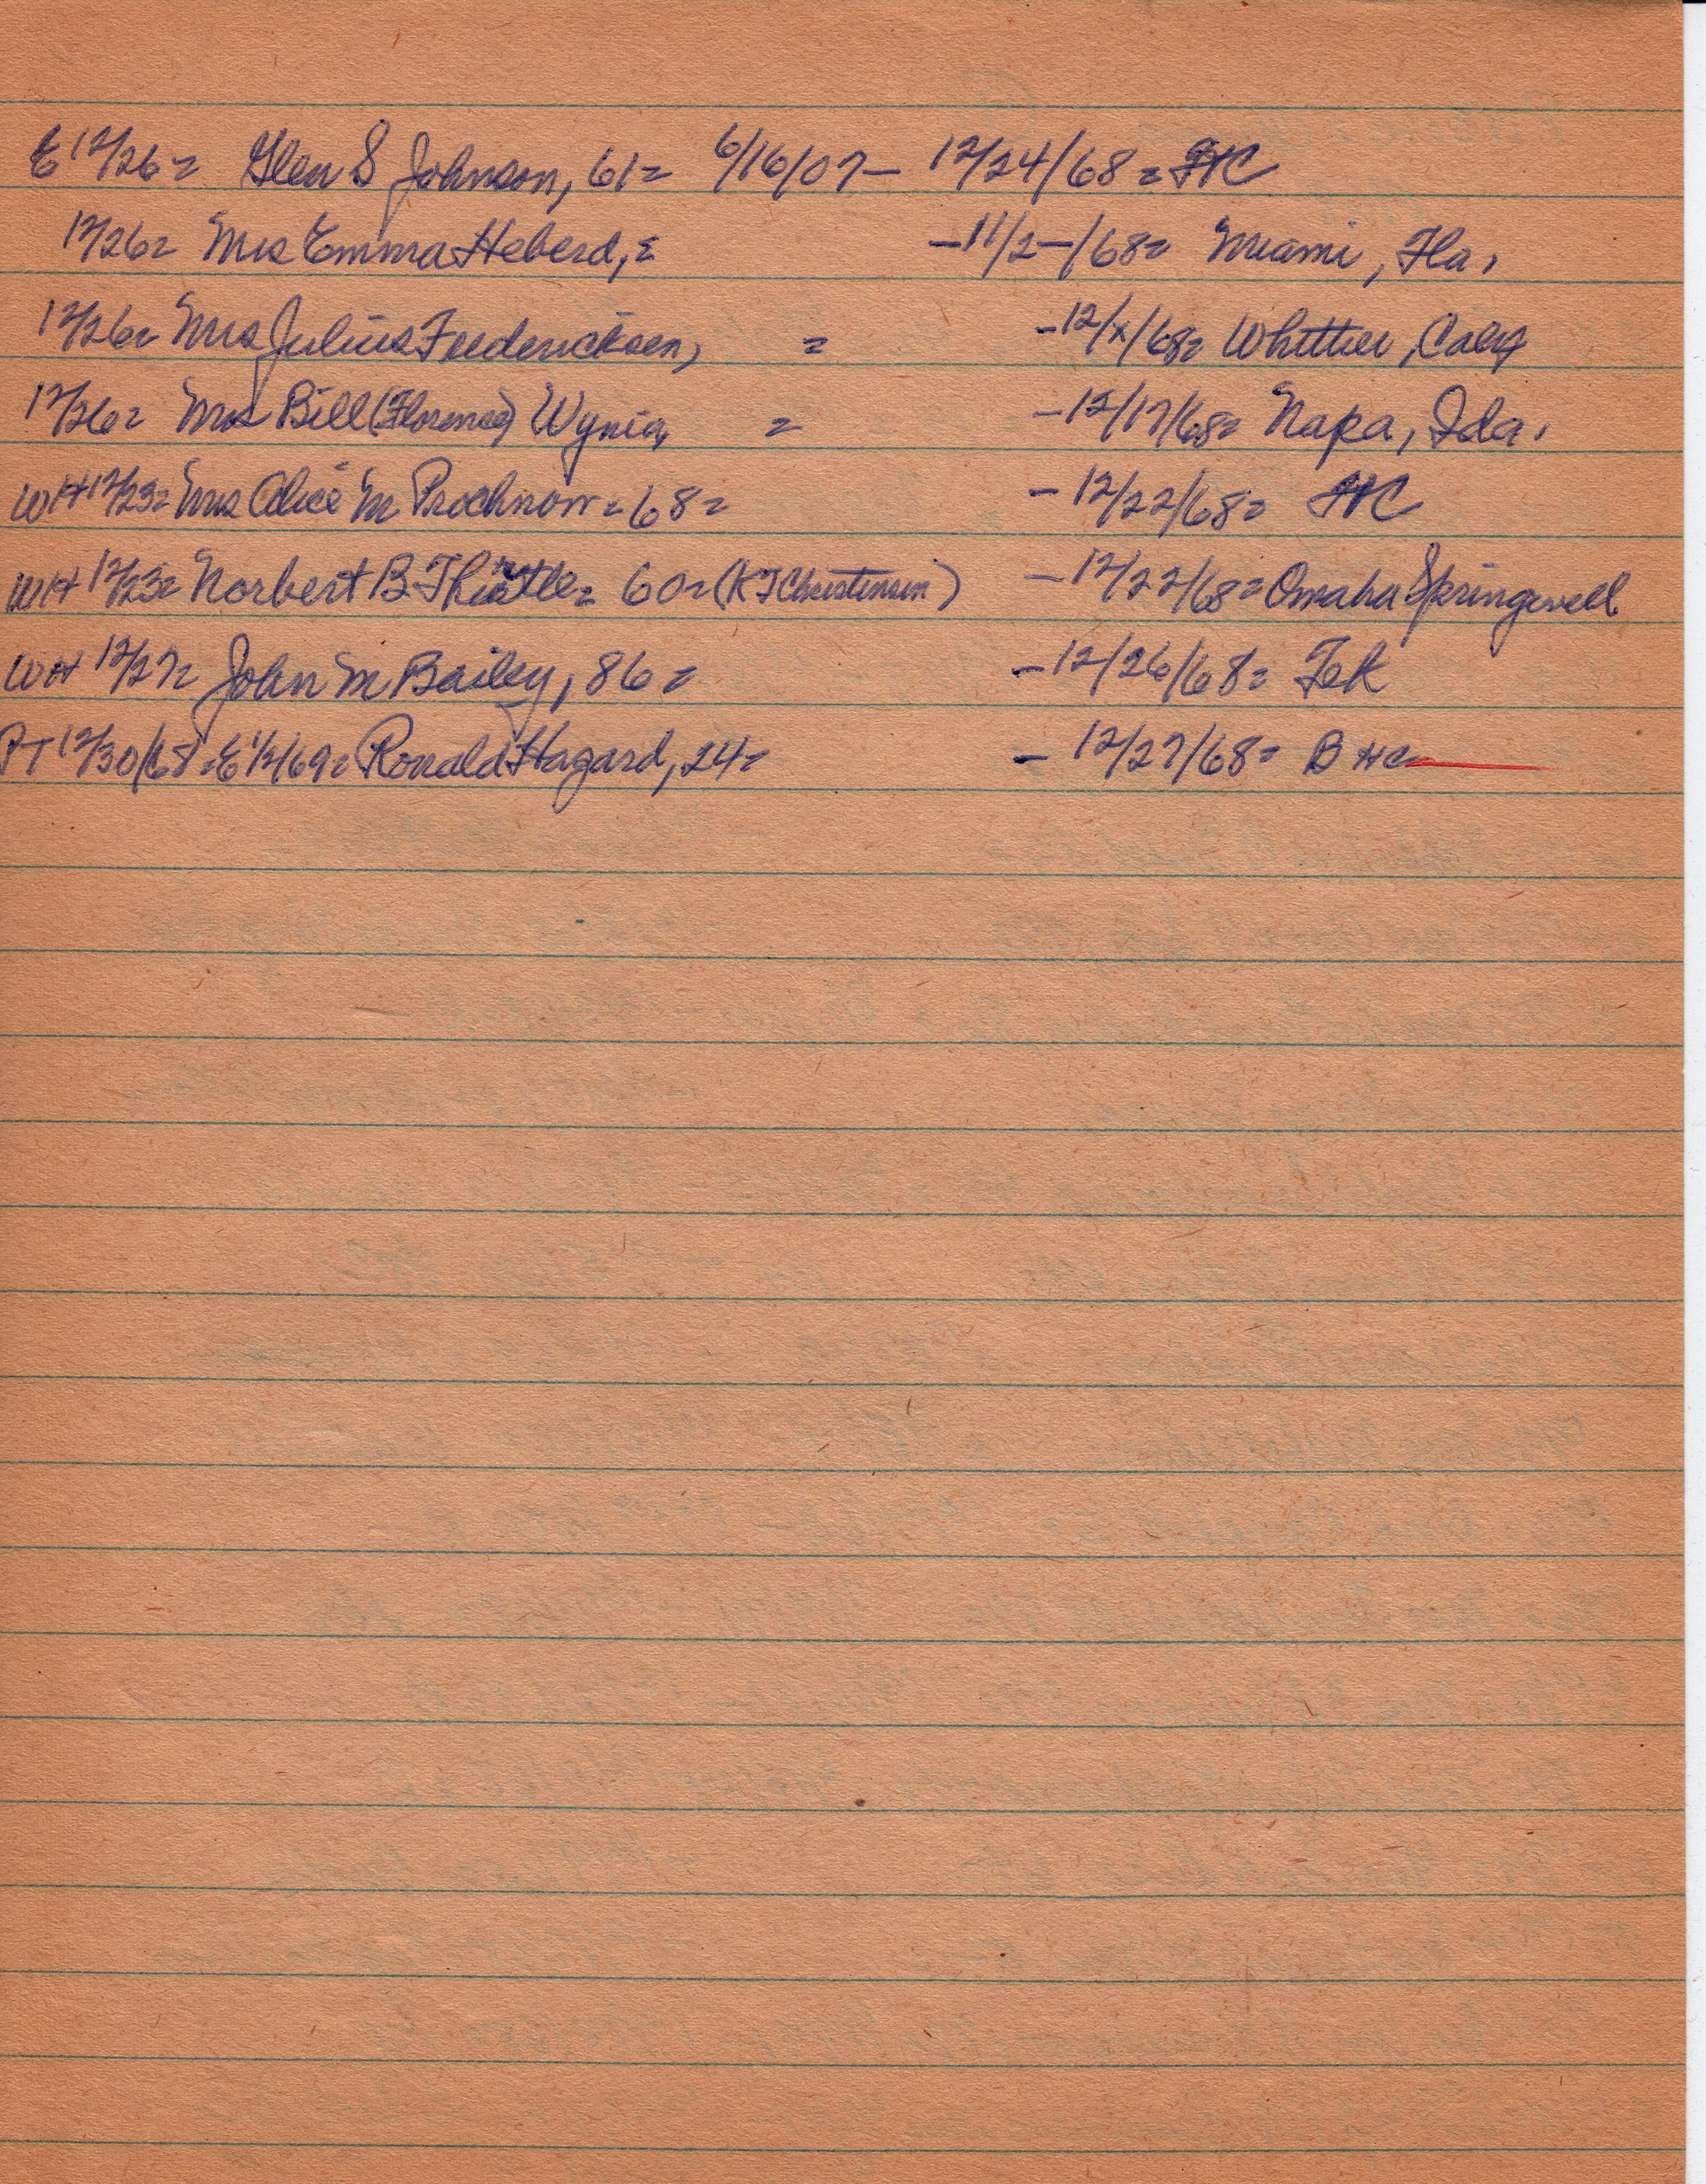 E 12/26= Glen S Johnson, 61= 6/16/07- 12/24/68= FC
12/26= Mrs Emma Heberd, = -11/2-/68= Miami, Fla,
12/26= Mrs Julius Fredericksen, = -12/x/68= Whittier, Calif
12/26= Mrs Bill (Florence) Wynia, = -12/17/68= Napa, Ida.
WH 12/23= Mrs Alice M Prochnow= 68= -12/22/68= FC
WH 12/23= Norbert B = 60= (K J Christensen) -12/22/68= Omaha Springwell
WH 12/27= John M Bailey, 86= -12/26/68= Tek
PT 12/30/68=E 1/2/69= Ronald Hagard, 24= - 12/27/68= B HC